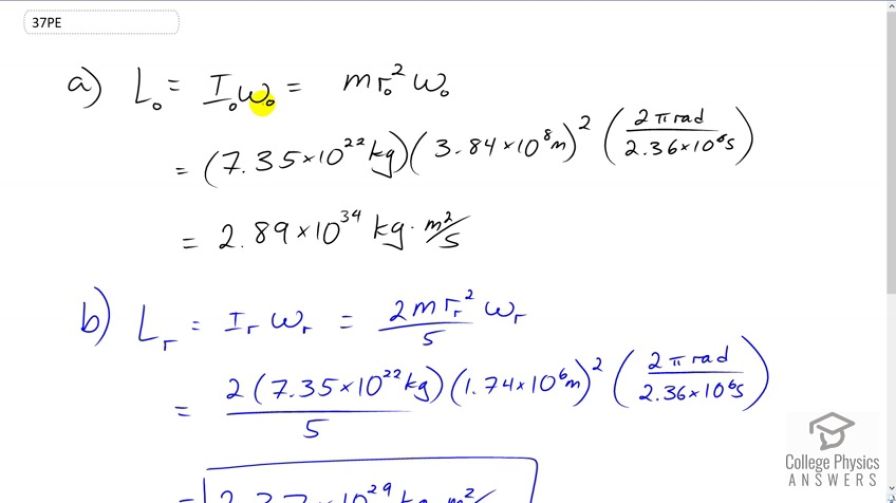 37PE
a) L₀ = I₀ω₀ = mr₀²ω₀
= (7.35×10²²kg)(3.84×10⁸m)² (2π rad / 2.36×10⁶s)
= 2.89×10³⁴ kg·m²/s
b) Lᵣ = Iᵣωᵣ = 2mrᵣ²/5 ωᵣ
= 2(7.35×10²²kg)(1.74×10⁶m)²/5 (2π rad / 2.36×10⁶s)
College Physics
ANSWERS